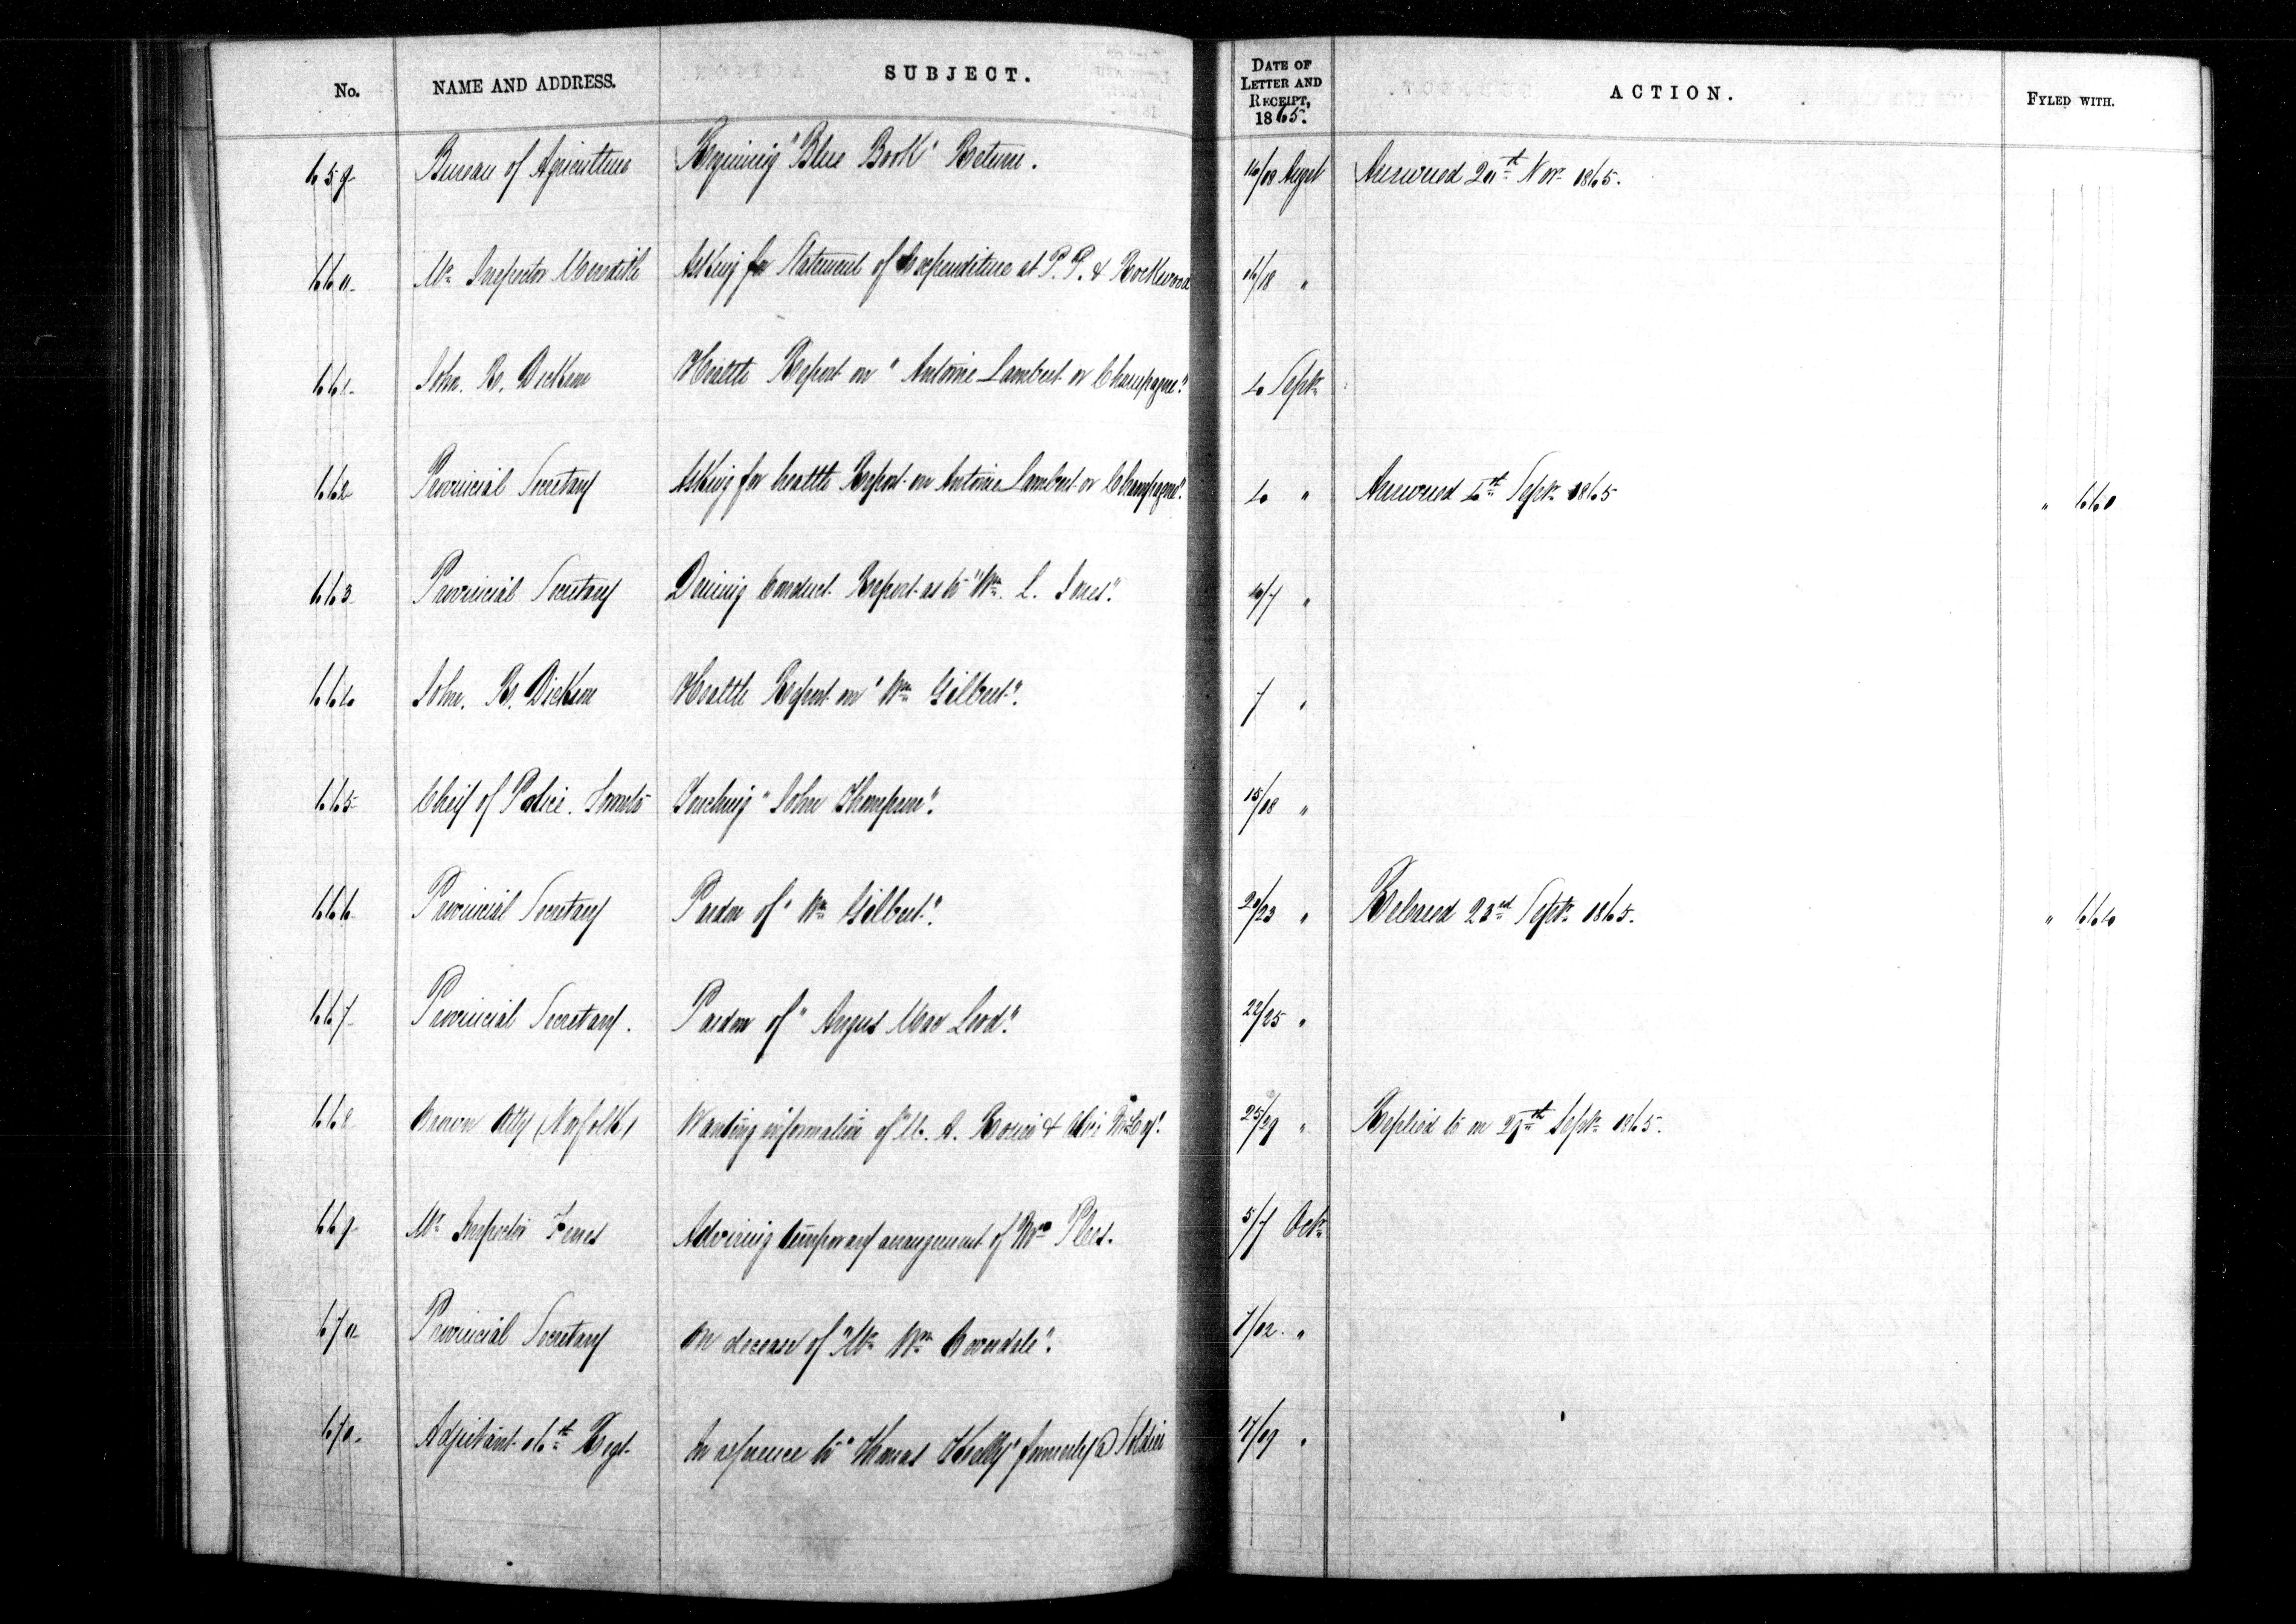 No. NAME AND ADDRESS. SUBJECT. DATE OF LETTER AND RECEIPT, 1865. ACTION. FYLED WITH.
659 Bureau of Agriculture Requiring "Blue Book" Return. 16/18 Augst Answered 20th Novr 1865.
660 Mr Inspector Meredith Asking for Statement of Expenditure at P. P. & Rockwood 16/18 "
661 John. R. Dickson Health Report on "Antoine Lambert or Champagne". 4 Septr
662 Provincial Secretary Asking for health Report on Antoine Lambert or Champagne". 4 " Answered 4th Septr 1865 " 661
663 Provincial Secretary Desiring Conduct Report as to "Wm. L. Jones". 4/7 "
664 John. R. Dickson Health Report on "Wm Gilbert". 7 "
665 Cheif of Police. Toronto Touching "John Thompson". 15/18 "
666 Provincial Secretary Pardon of "Wm Gilbert". 20/23 " Released 23rd Septr 1865. " 664
667 Provincial Secretary. Pardon of "Angus Mac Leod". 22/25 "
668 Crown Atty (Norfolk) Wanting information of "M. A. 25/29 " Replied to on 29th Septr 1865.
669 Mr Inspector Ferres Advising temporary arrangement of Mrs Plees. 5/7 Octr
670 Provincial Secretary On decease of "Mr Wm Coverdale". 7/12. "
671 Adjutant 16th Regt In reference to "Thomas Kelly" formerly a Soldier 17/19 "